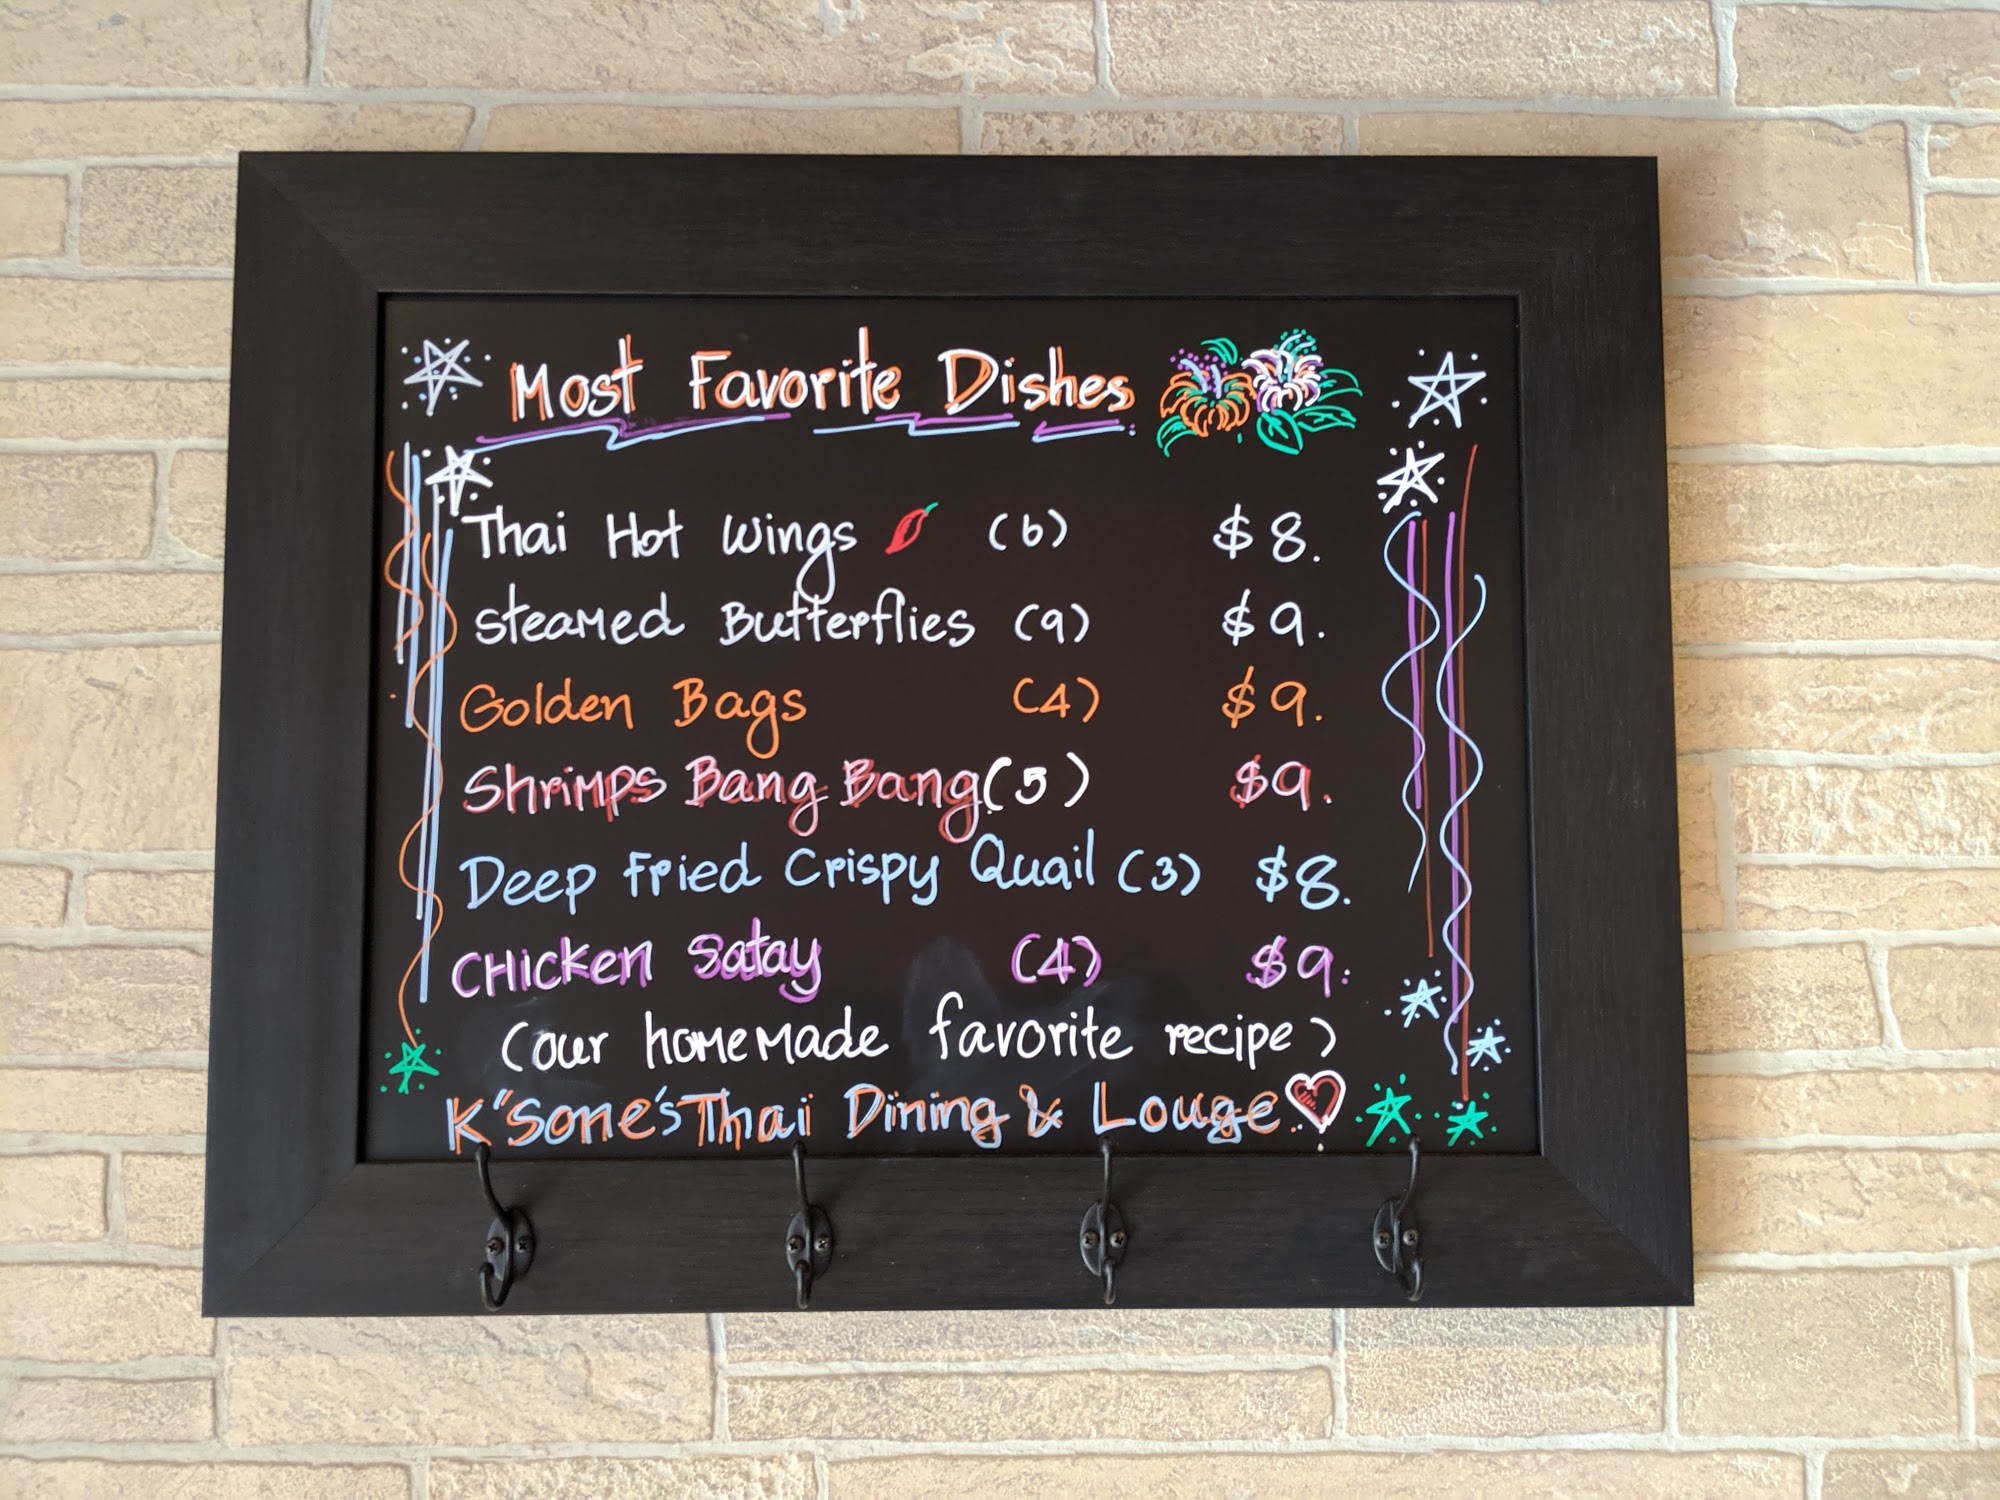 Most Favorite Dishes
Thai Hot Wings (6) $8.
Steamed Butterflies (9) $9.
Golden Bags (4) $9.
Shrimps Bang Bang (5) $9.
Deep Fried Crispy Quail (3) $8.
Chicken Satay (4) $9.
(our homemade favorite recipe)
K"Sone's Thai Dining & Louge